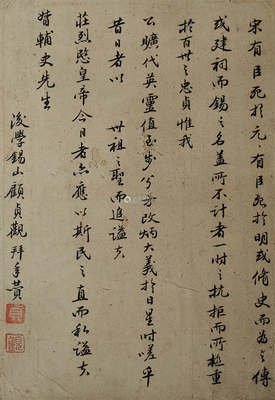 宋有臣死於元元有臣死於明或脩史而為之傳
或建祠而錫之名蓋所不計者一時之抗拒而所極重
於百世之忠貞惟我
公曠代英靈值玉步兮方改炳大義於日星吁嗟乎
昔日者以 世祖之聖而追謚夫
莊烈愍皇帝今日者亦應以斯民之直而私謚夫
督輔史先生
後學錫山顧貞觀拜手贊